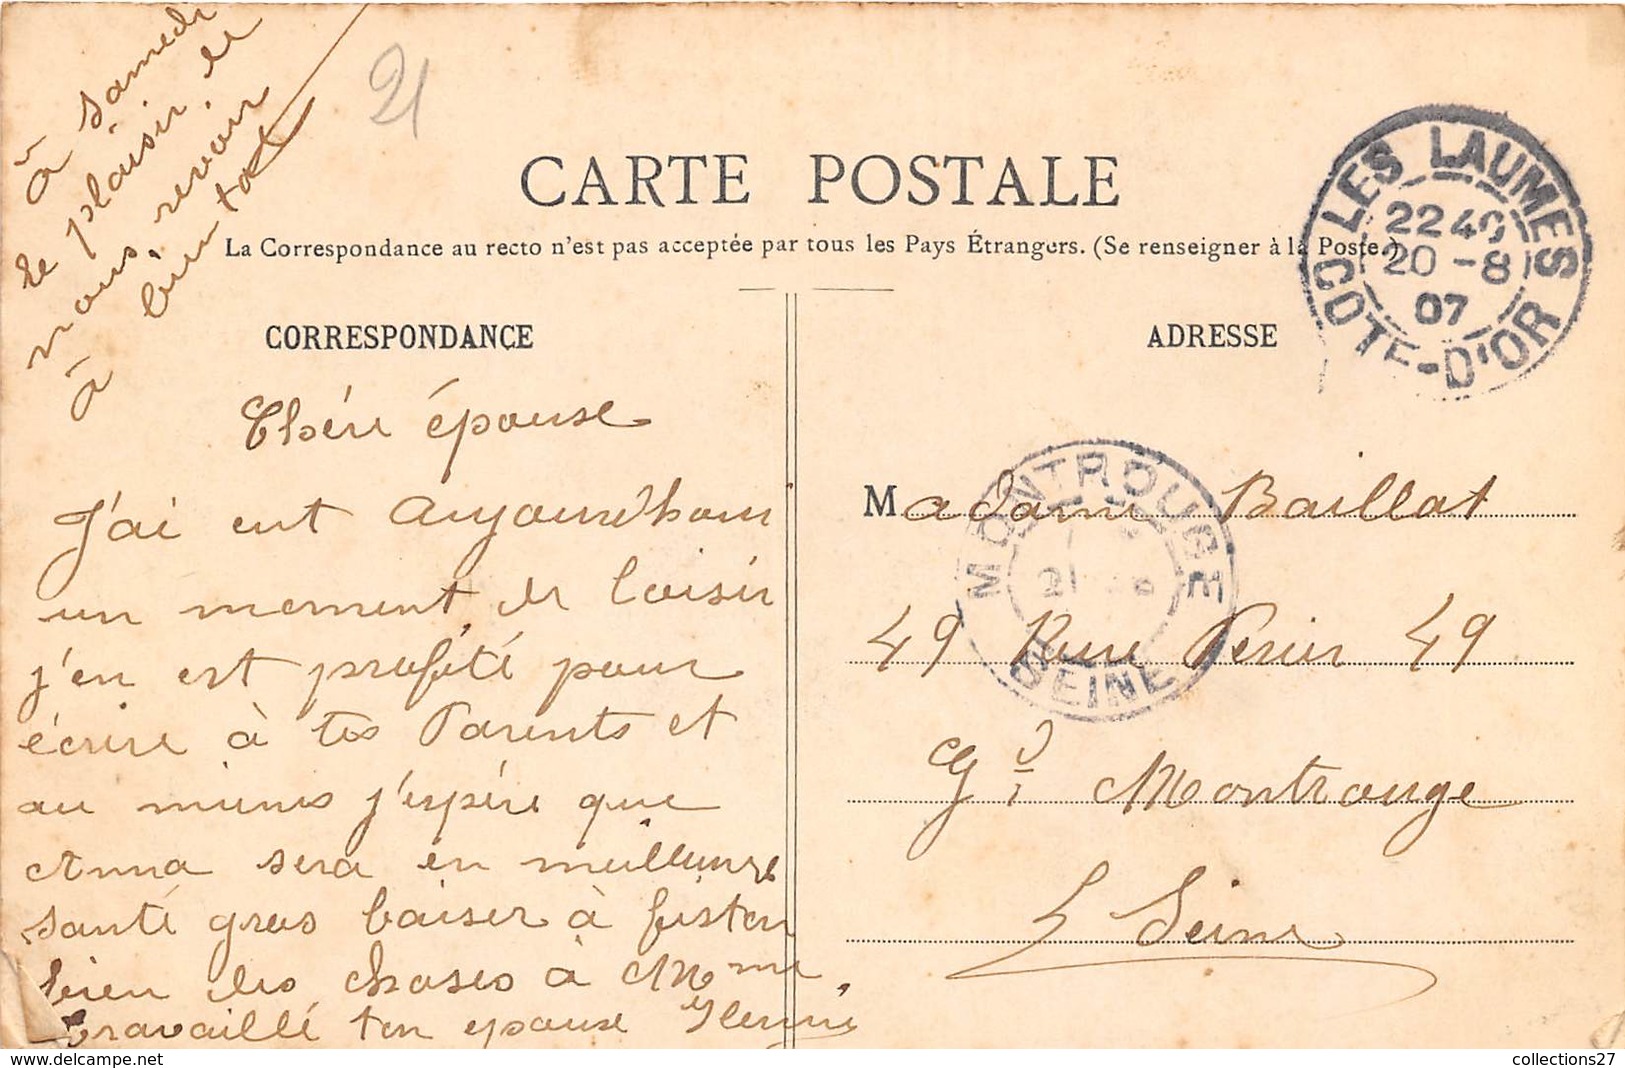 à samedi
le plaisir de
nous revoir
à bientot
21
CARTE POSTALE
La Correspondance au recto n'est pas acceptée par tous les Pays Étrangers. (Se renseigner à la Poste.)
CORRESPONDANCE
ADRESSE
LES LAUMES
2240
20 -8
07
COTE-D'OR
Chére épouse
J'ai eut Aujourd'hui
un moment de loisir
j'en est profité pour
écrire à tes Parents et
au miens j'espére que
Anna sera en meilleure
santé gros baiser à fiston
bien des choses à Mme
Travaillé ton epoux Henri
MONTROUGE
21 8
SEINE
Madame Baillat
49 Rue Perier 49
Gd Montrouge
Seine
collections27